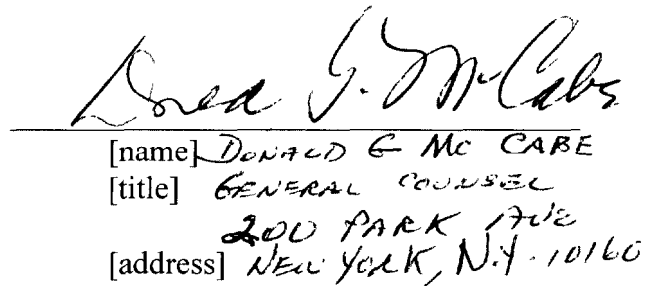 Donald G. McCabe
[name] DONALD G MC CABE
[title] GENERAL COUNSEL
200 PARK AVE
[address] NEW YORK, N.Y. 10160